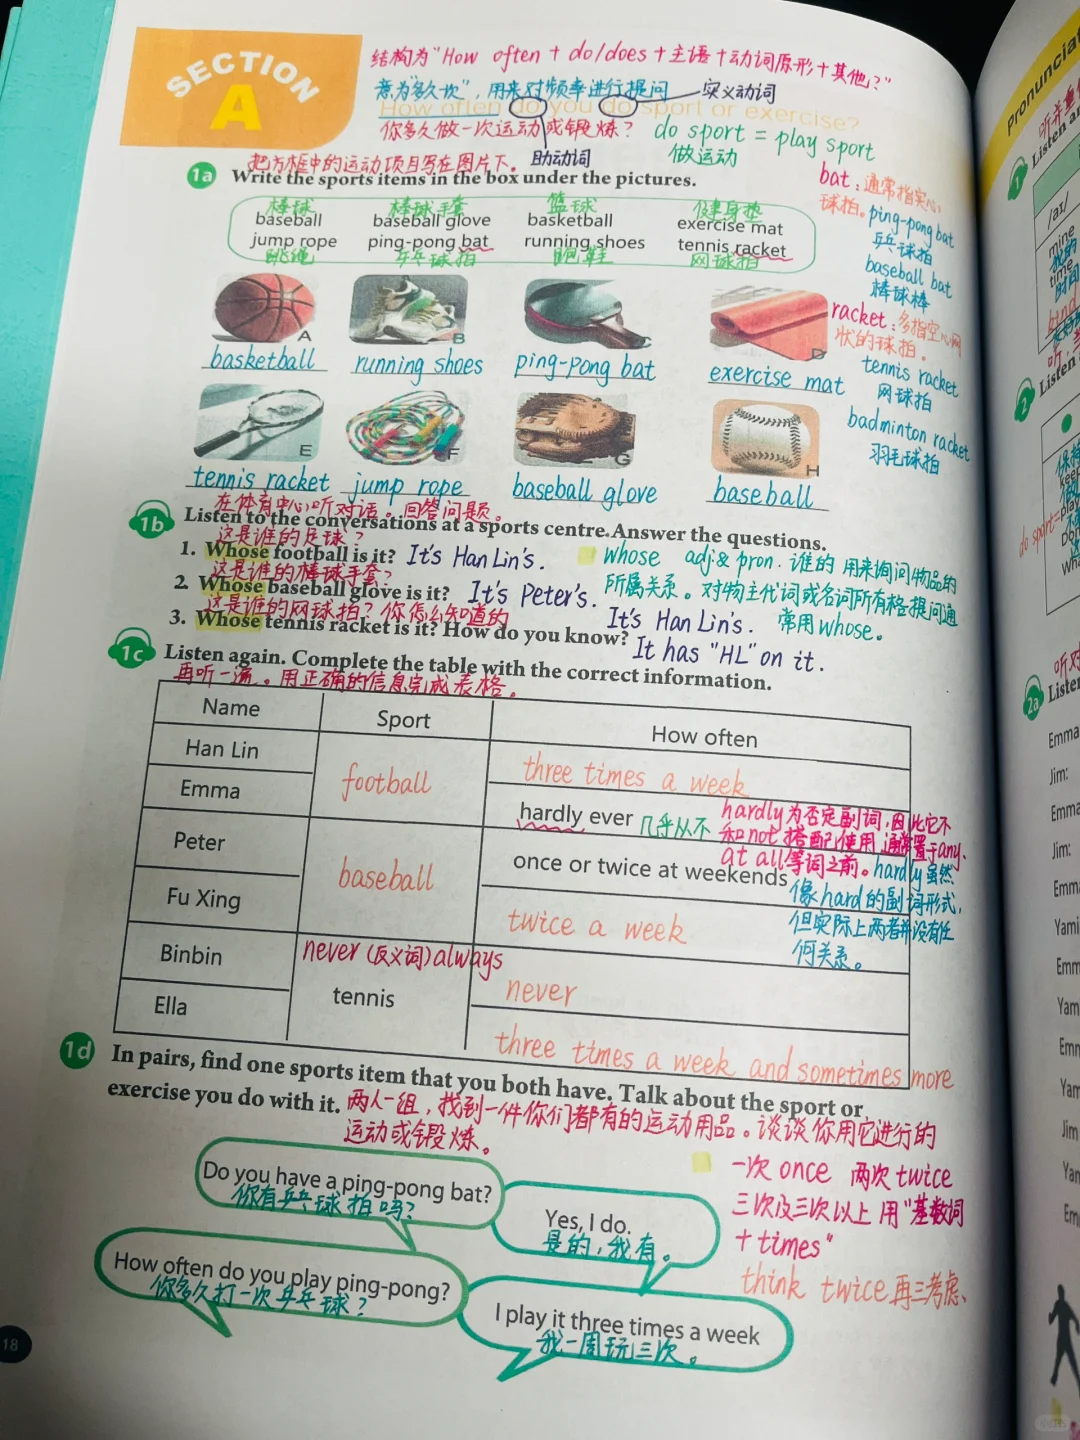 SECTION
A
结构为"How often + do/does + 主语 + 动词原形 + 其他?"
意为"多久一次", 用来对频率进行提问
实义动词
How often do you do sport or exercise?
你多久做一次运动或锻炼?
do sport = play sport
做运动
助动词
把方框中的运动项目写在图片下。
1a Write the sports items in the box under the pictures.
棒球 棒球手套 篮球 健身垫
baseball baseball glove basketball exercise mat
jump rope ping-pong bat running shoes tennis racket
跳绳 乒乓球拍 跑鞋 网球拍
bat: 通常指实心
球拍。ping-pong bat
乒乓球拍
baseball bat
棒球棒
racket: 多指空心网
状的球拍。
tennis racket
网球拍
badminton racket
羽毛球拍
A B C D
basketball running shoes ping-pong bat exercise mat
E F G H
tennis racket jump rope baseball glove baseball
在体育中心听对话。回答问题。
1b Listen to the conversations at a sports centre. Answer the questions.
这是谁的足球?
1. Whose football is it? It's Han Lin's.
这是谁的棒球手套?
2. Whose baseball glove is it? It's Peter's.
这是谁的网球拍? 你怎么知道的
3. Whose tennis racket is it? How do you know? It's Han Lin's.
It has "HL" on it.
whose adj & pron. 谁的 用来询问物品的
所属关系。对物主代词或名词所有格提问通
常用whose。
1c Listen again. Complete the table with the correct information.
再听一遍。用正确的信息完成表格。
Name Sport How often
Han Lin football three times a week
Emma hardly ever 几乎从不
Peter baseball once or twice at weekends
Fu Xing twice a week
Binbin tennis never
Ella three times a week and sometimes more
never (反义词) always
hardly为否定副词,因此它不
和not搭配使用,通常置于any、
at all等词之前。hardly虽然
像hard的副词形式,
但实际上两者并没有任
何关系。
1d In pairs, find one sports item that you both have. Talk about the sport or
exercise you do with it. 两人一组,找到一件你们都有的运动用品。谈谈你用它进行的
运动或锻炼。
Do you have a ping-pong bat?
你有乒乓球拍吗?
Yes, I do.
是的,我有。
How often do you play ping-pong?
你多久打一次乒乓球?
I play it three times a week
我一周玩三次。
一次 once 两次 twice
三次及三次以上 用"基数词
+ times"
think twice 再三考虑、
18
Pronuncia
1
Listen an
/aɪ/
mine
我的
time
时间
2
Listen
2a
Listen
Emma
Jim:
Emma
Jim:
Emma
Yami
Emm
Yam
Emm
Yam
Em
Jim
Ya
Em